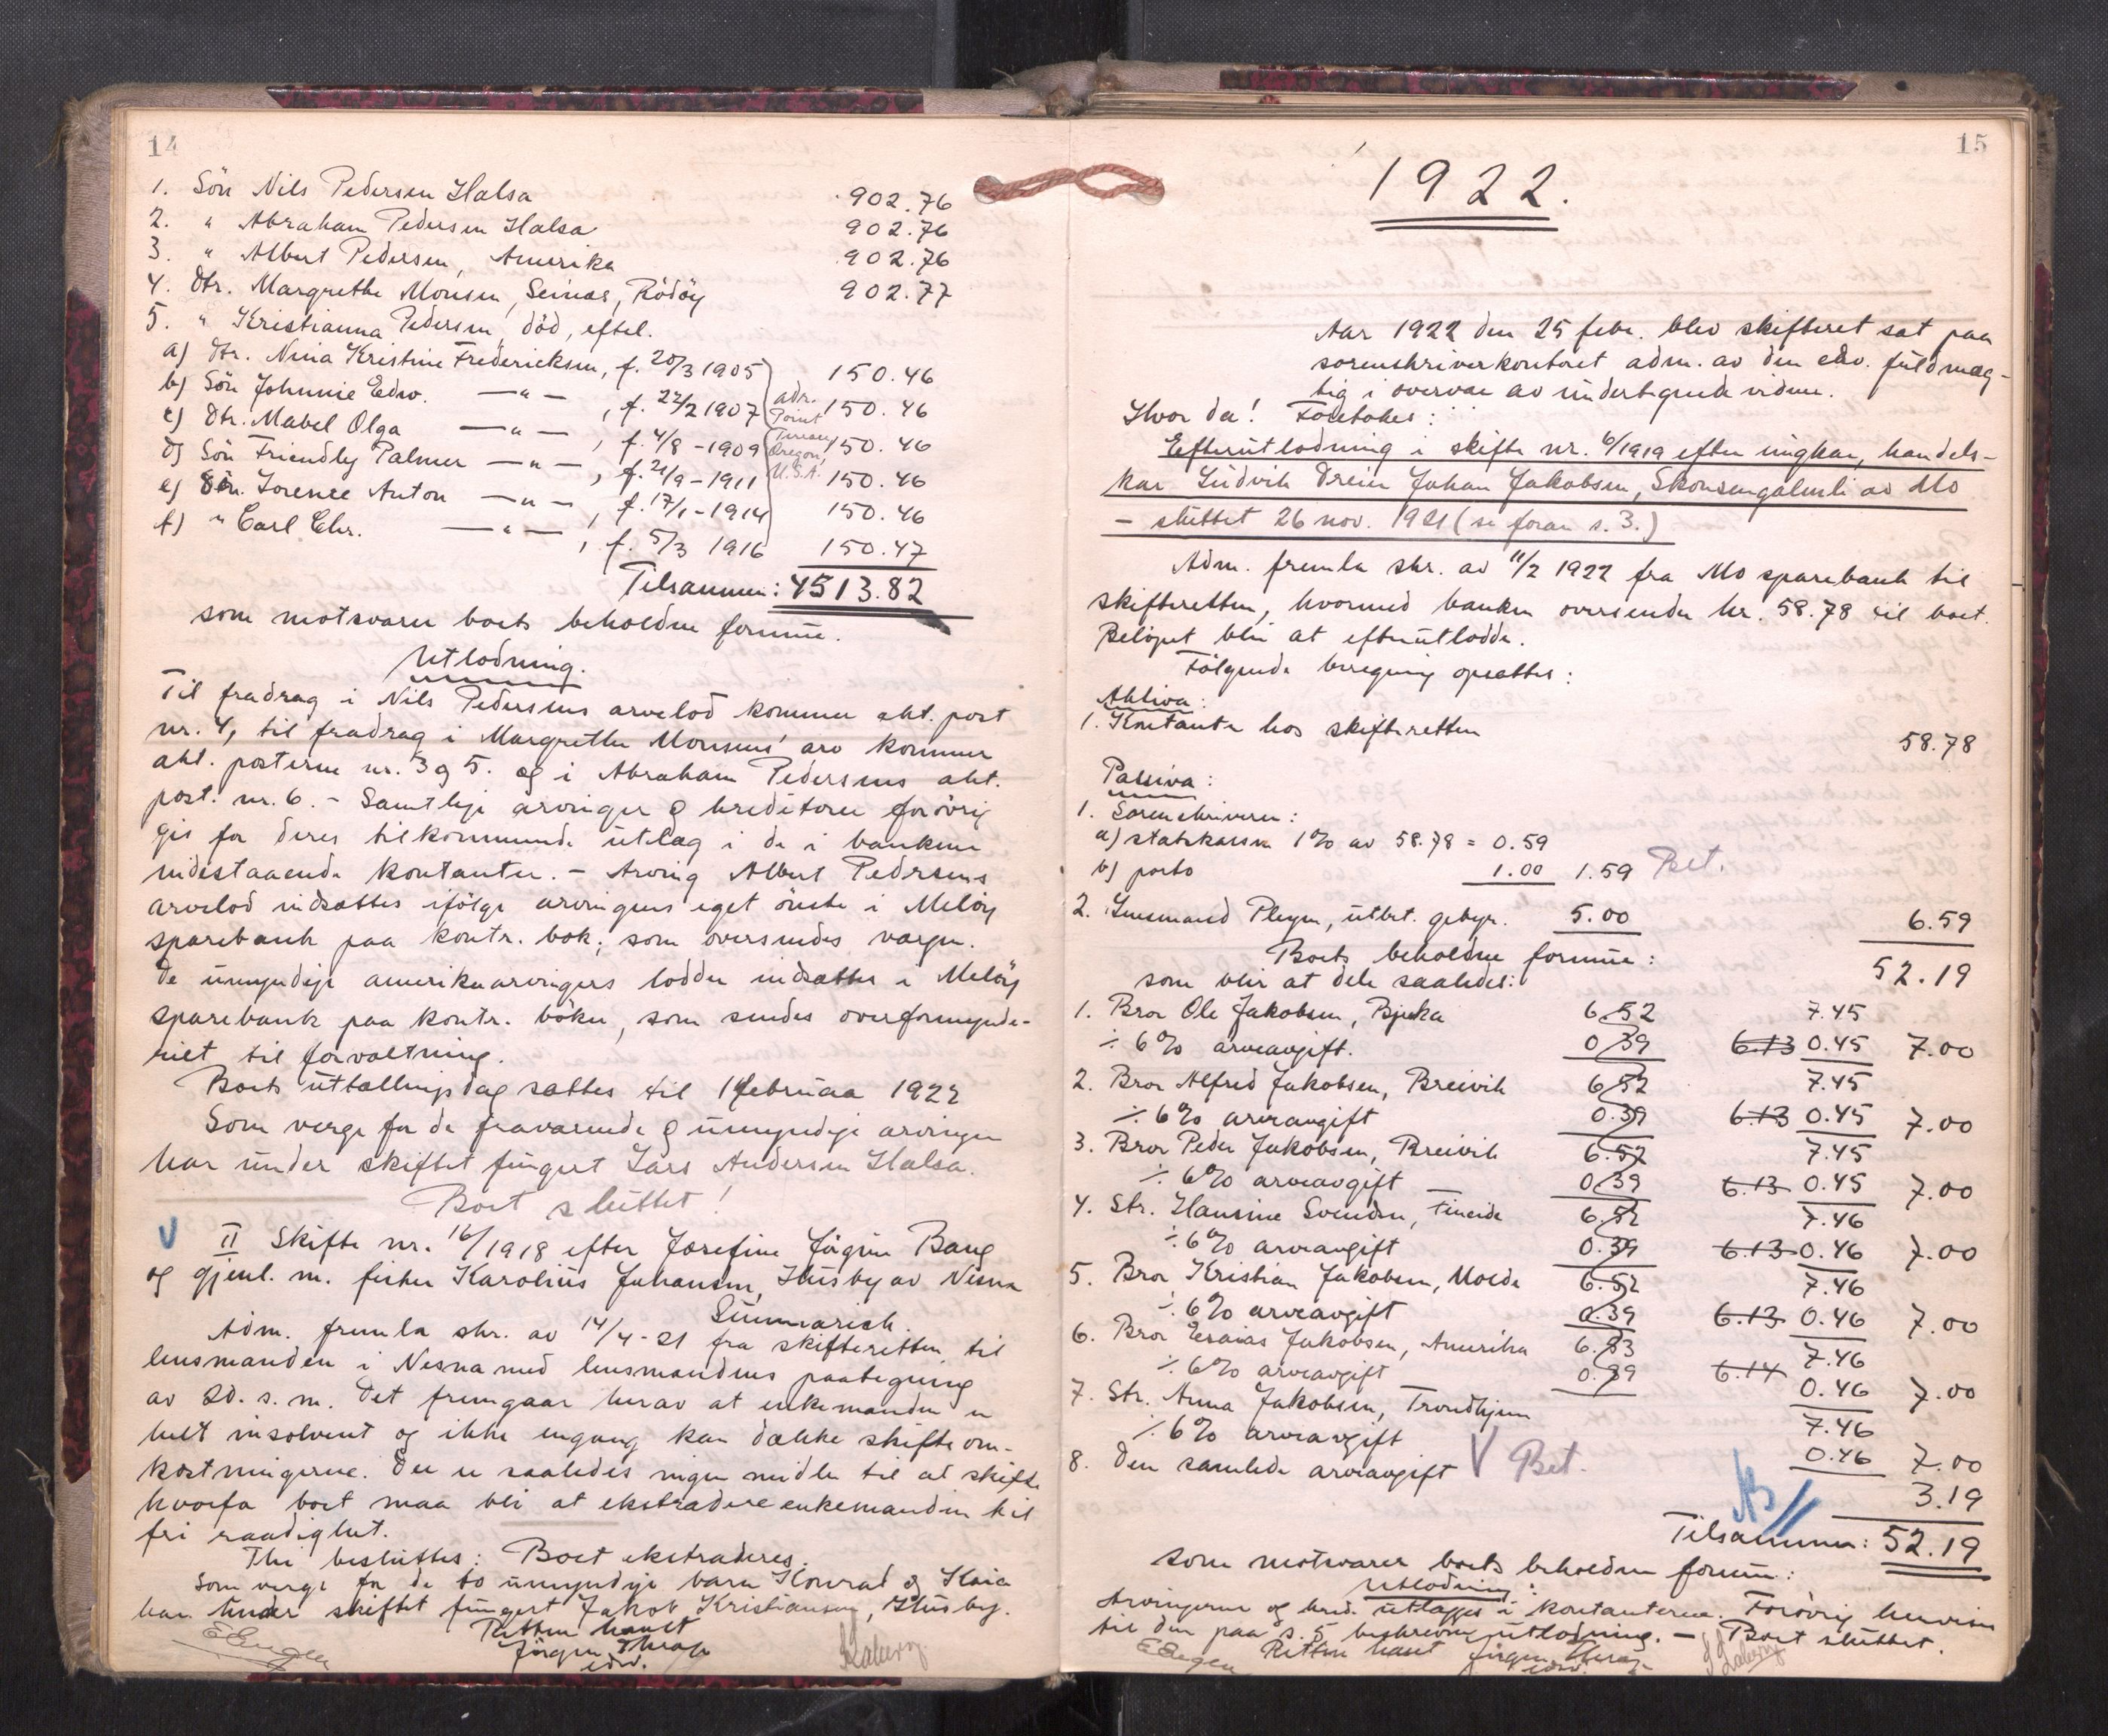 14
1. Sön Nils Pedersen Halsa 902.76
2. " Abraham Pedersen Halsa 902.76
3. " Albert Pedersen, Amerika 902.76
4. Dtr. Margrethe Monsen, Seinæs, Rödöy 902.77
5. " Kristianna Pedersen, död, eftel.
a) Dtr. Nina Kristine Fredericksen, f. 20/3 1905 150.46
b) Sön Johnnie Edw. —"— , f. 22/2 1907 150.46
c) Dtr. Mabel Olga —"— , f. 4/8 - 1909 150.46
d) Sön Friendly Palmer —"— , f. 21/9 - 1911 150.46
e) Sön. Lorence Anton —"— , f. 17/1 - 1914 150.46
f) " Carl Chr. —"— , f. 5/3 1916 150.47
adr.
Point
Oregon,
U.S.A.
Tilsammen: 4513.82
som motsvarer boets beholdne formue.
Utlodning.
Til fradrag i Nils Pedersens arvelod kommer akt. post
nr. 4, til fradrag i Margrethe Monsens' arv kommer
akt. posterne nr. 3 og 5. og i Abraham Pedersens akt.
post. nr. 6. - Samtlige arvinger & kreditorer forövrig
gis for deres tilkommende utlæg i de i banken
indestaaende kontanter. - Arving Albert Pedersens
arvelod indsættes ifölge arvingens eget önske i Melöy
sparebank paa kontr. bok, som oversendes vargen.
De umyndige amerikaarvingers lodder indsættes i Melöy
sparebank paa kontr. böker, som sendes overformynde-
riet til forvaltning.
Boets uttællingsdag sættes til 1 februar 1922
Som verge for de fraværende & umyndige arvinger
har under skiftet fungert Lars Andersen Halsa.
Boet sluttet!
V II Skifte nr. 16/1918 efter Josefine Jörgine Bang
og gjenl. m. fisker Karolius Johansen, Husby av Nesna
Summarisk.
Adm. fremla skr. av 14/4 - 21 fra skifteretten til
lensmanden i Nesna med lensmandens paategning
av 20. s. m. Det fremgaar herav at enkemanden er
helt insolvent og ikke engang kan dække skifteom-
kostningerne. Der er saaledes ingen midler til at skifte
hvorfor boet maa bli at ekstradere enkemanden til
fri raadighet.
Thi besluttes: Boet ekstraderes.
Som verge for de to umyndige barn Konrad og Kaia
har under skiftet fungert Jakob Kristiansen, Husby.
Retten hævet
Jörgen Thrap
edv.
15
1922.
Aar 1922 den 25 febr. blev skifteret sat paa
sorenskriverkontoret adm. av den edv. fuldmæg-
tig i overvær av undertegnede vidner.
Hvor da! Foretokes:
Efterutlodning i skifte nr. 6/1919 efter ungkar, handels-
kar Ludvik Dreier Johan Jakobsen, Skonsengalmli av Mo
- sluttet 26 nov. 1921 (se foran s. 3.)
Adm. fremla skr. av 11/2 1922 fra Mo sparebank til
skifteretten, hvormed banken oversender kr. 58.78 til boet.
Belöpet blir at efterutlodde.
Fölgende beregning opsættes:
Aktiva:
1. Kontanter hos skifteretten 58.78
Passiva:
1. Sorenskriveren:
a) statskassen 1% av 58.78 = 0.59
b) porto 1.00 1.59 Bet.
2. Lensmand Pleym, utbet. gebyr. 5.00 6.59
Boets beholdne formue: 52.19
som blir at dele saaledes:
1. Bror Ole Jakobsen, Bjerka 6.52 7.45
÷ 6% arveavgift. 0.39 6.13 0.45 7.00
2. Bror Alfred Jakobsen, Breivik 6.52 7.45
÷ 6% arveavgift 0.39 6.13 0.45 7.00
3. Bror Peder Jakobsen, Breivik 6.52 7.45
÷ 6% arveavgift 0.39 6.13 0.45 7.00
4. Str. Hansine Svendsen, Fineide 6.52 7.46
÷ 6% arveavgift 0.39 6.13 0.46 7.00
5. Bror Kristian Jakobsen, Molde 6.52 7.46
÷ 6% arveavgift 0.39 6.13 0.46 7.00
6. Bror Esaias Jakobsen, Amerika 6.53 7.46
÷ 6% arveavgift 0.39 6.14 0.46 7.00
7. Str. Anna Jakobsen, Trondhjem 7.46
÷ 6% arveavgift 0.46 7.00
8. Den samlede arveavgift V Bet. 3.19
Tilsammen: 52.19
som motsvarer boets beholdne formue:
Utlodning:
Arvingerne og kred. utlægges i kontanterne. Forövrig henvises
til den paa s. 5 beskrevne utlodning. - Boet sluttet.
Retten hævet Jörgen Thrap
edv.